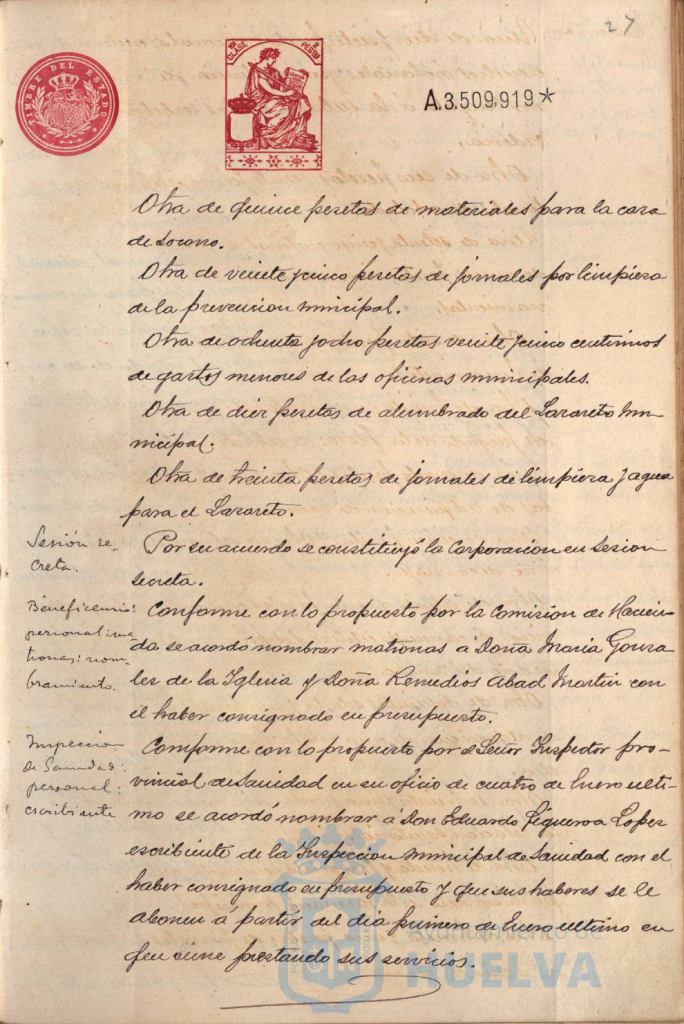 27
TIMBRE DEL ESTADO
10ª CLASE 2 PESETAS
A.3.509.919*
Otra de quince pesetas de materiales para la casa
de Socorro.
Otra de veinte y cinco pesetas de jornales por limpieza
de la prevencion municipal.
Otra de ochenta y ocho pesetas veinte y cinco centimos
de gastos menores de las oficinas municipales.
Otra de diez pesetas de alumbrado del Lazareto mu-
nicipal.
Otra de treinta pesetas de jornales de limpieza y agua
para el Lazareto.
Sesión se-
creta.
Por su acuerdo se constituyó la Corporacion en sesion
secreta.
Beneficencia:
personal: ma-
tronas: nom-
bramiento.
Conforme con lo propuesto por la Comision de Hacien-
da se acordó nombrar matronas á Doña Maria Gonza-
les de la Iglesia y Doña Remedios Abad Martin con
el haber consignado en presupuesto.
Inspeccion
de Sanidad:
personal:
escribiente
Conforme con lo propuesto por el Señor Inspector pro-
vincial de Sanidad en su oficio de cuatro de Enero ulti-
mo se acordó nombrar á Don Eduardo Figueroa Lopez
escribiente de la Inspeccion municipal de Sanidad con el
haber consignado en presupuesto y que sus haberes se le
abonen á partir del dia primero de Enero ultimo en
que viene prestando sus servicios.
Ayuntamiento de
HUELVA